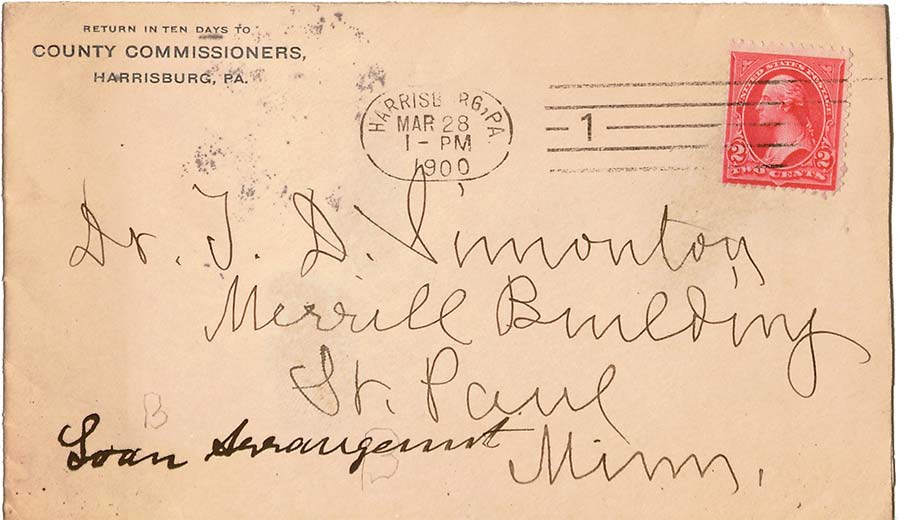 RETURN IN TEN DAYS TO
COUNTY COMMISSIONERS,
HARRISBURG, PA.
HARRISBURG, PA.
MAR 28
1 - PM
1900
1
UNITED STATES POSTAGE
2 2
TWO CENTS
Dr. T. D. Simonton
Merrill Building
St. Paul
Minn.
B
Loan Arrangement
B